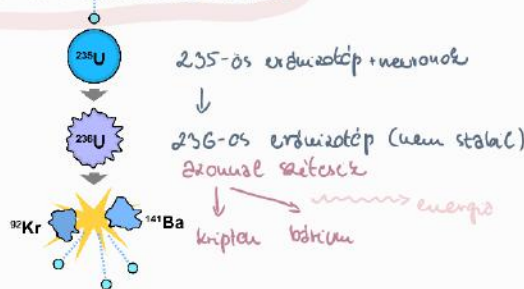 ²³⁵U
235-ös uránizotóp + neuronok
↓
²³⁶U
236-os uránizotóp (nem stabil)
azonnal szétesik
energia
⁹²Kr
¹⁴¹Ba
kripton bárium